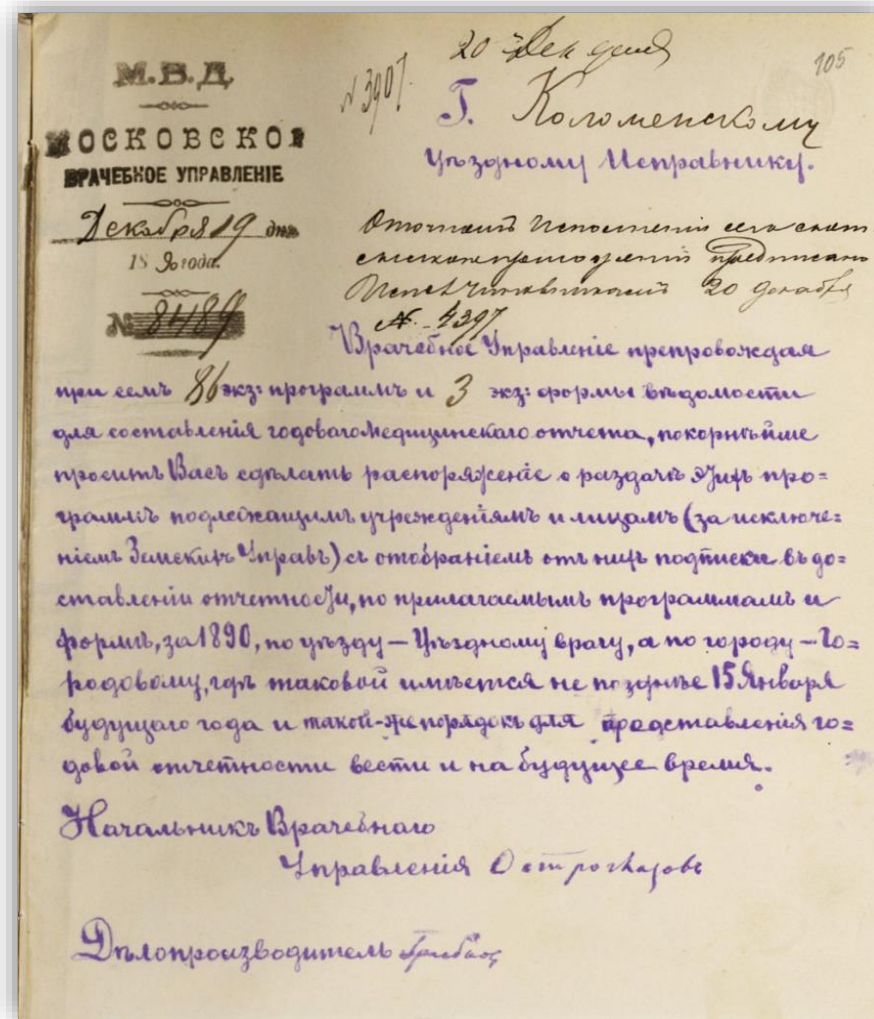 105
20 Дек
№ 3907
М.В.Д.
МОСКОВСКОЕ
ВРАЧЕБНОЕ УПРАВЛЕНІЕ
Декабря 19 дня
1890 года.
№ 8489
Г. Коломенскому
Уѣздному Исправнику.
сего
предписано
20 декабря
№ 4397
Врачебное Управленіе препровождая
при семъ 86 экз: программъ и 3 экз: формы вѣдомости
для составленія годоваго медицинскаго отчета, покорнѣйше
проситъ Васъ сдѣлать распоряженіе о раздачѣ этихъ про=
граммъ подлежащимъ учрежденіямъ и лицамъ (за исключе=
ніемъ Земскихъ Управъ) съ отобраніемъ отъ нихъ подписки въ до=
ставленіи отчетности, по прилагаемымъ программамъ и
формѣ, за 1890, по уѣзду — Уѣздному врачу, а по городу — Го=
родовому, гдѣ таковой имѣется не позднѣе 15 Января
будущаго года и такой-же порядокъ для представленія го=
довой отчетности вести и на будущее время.
Начальникъ Врачебнаго
Управленія Остроглазовъ
Дѣлопроизводитель